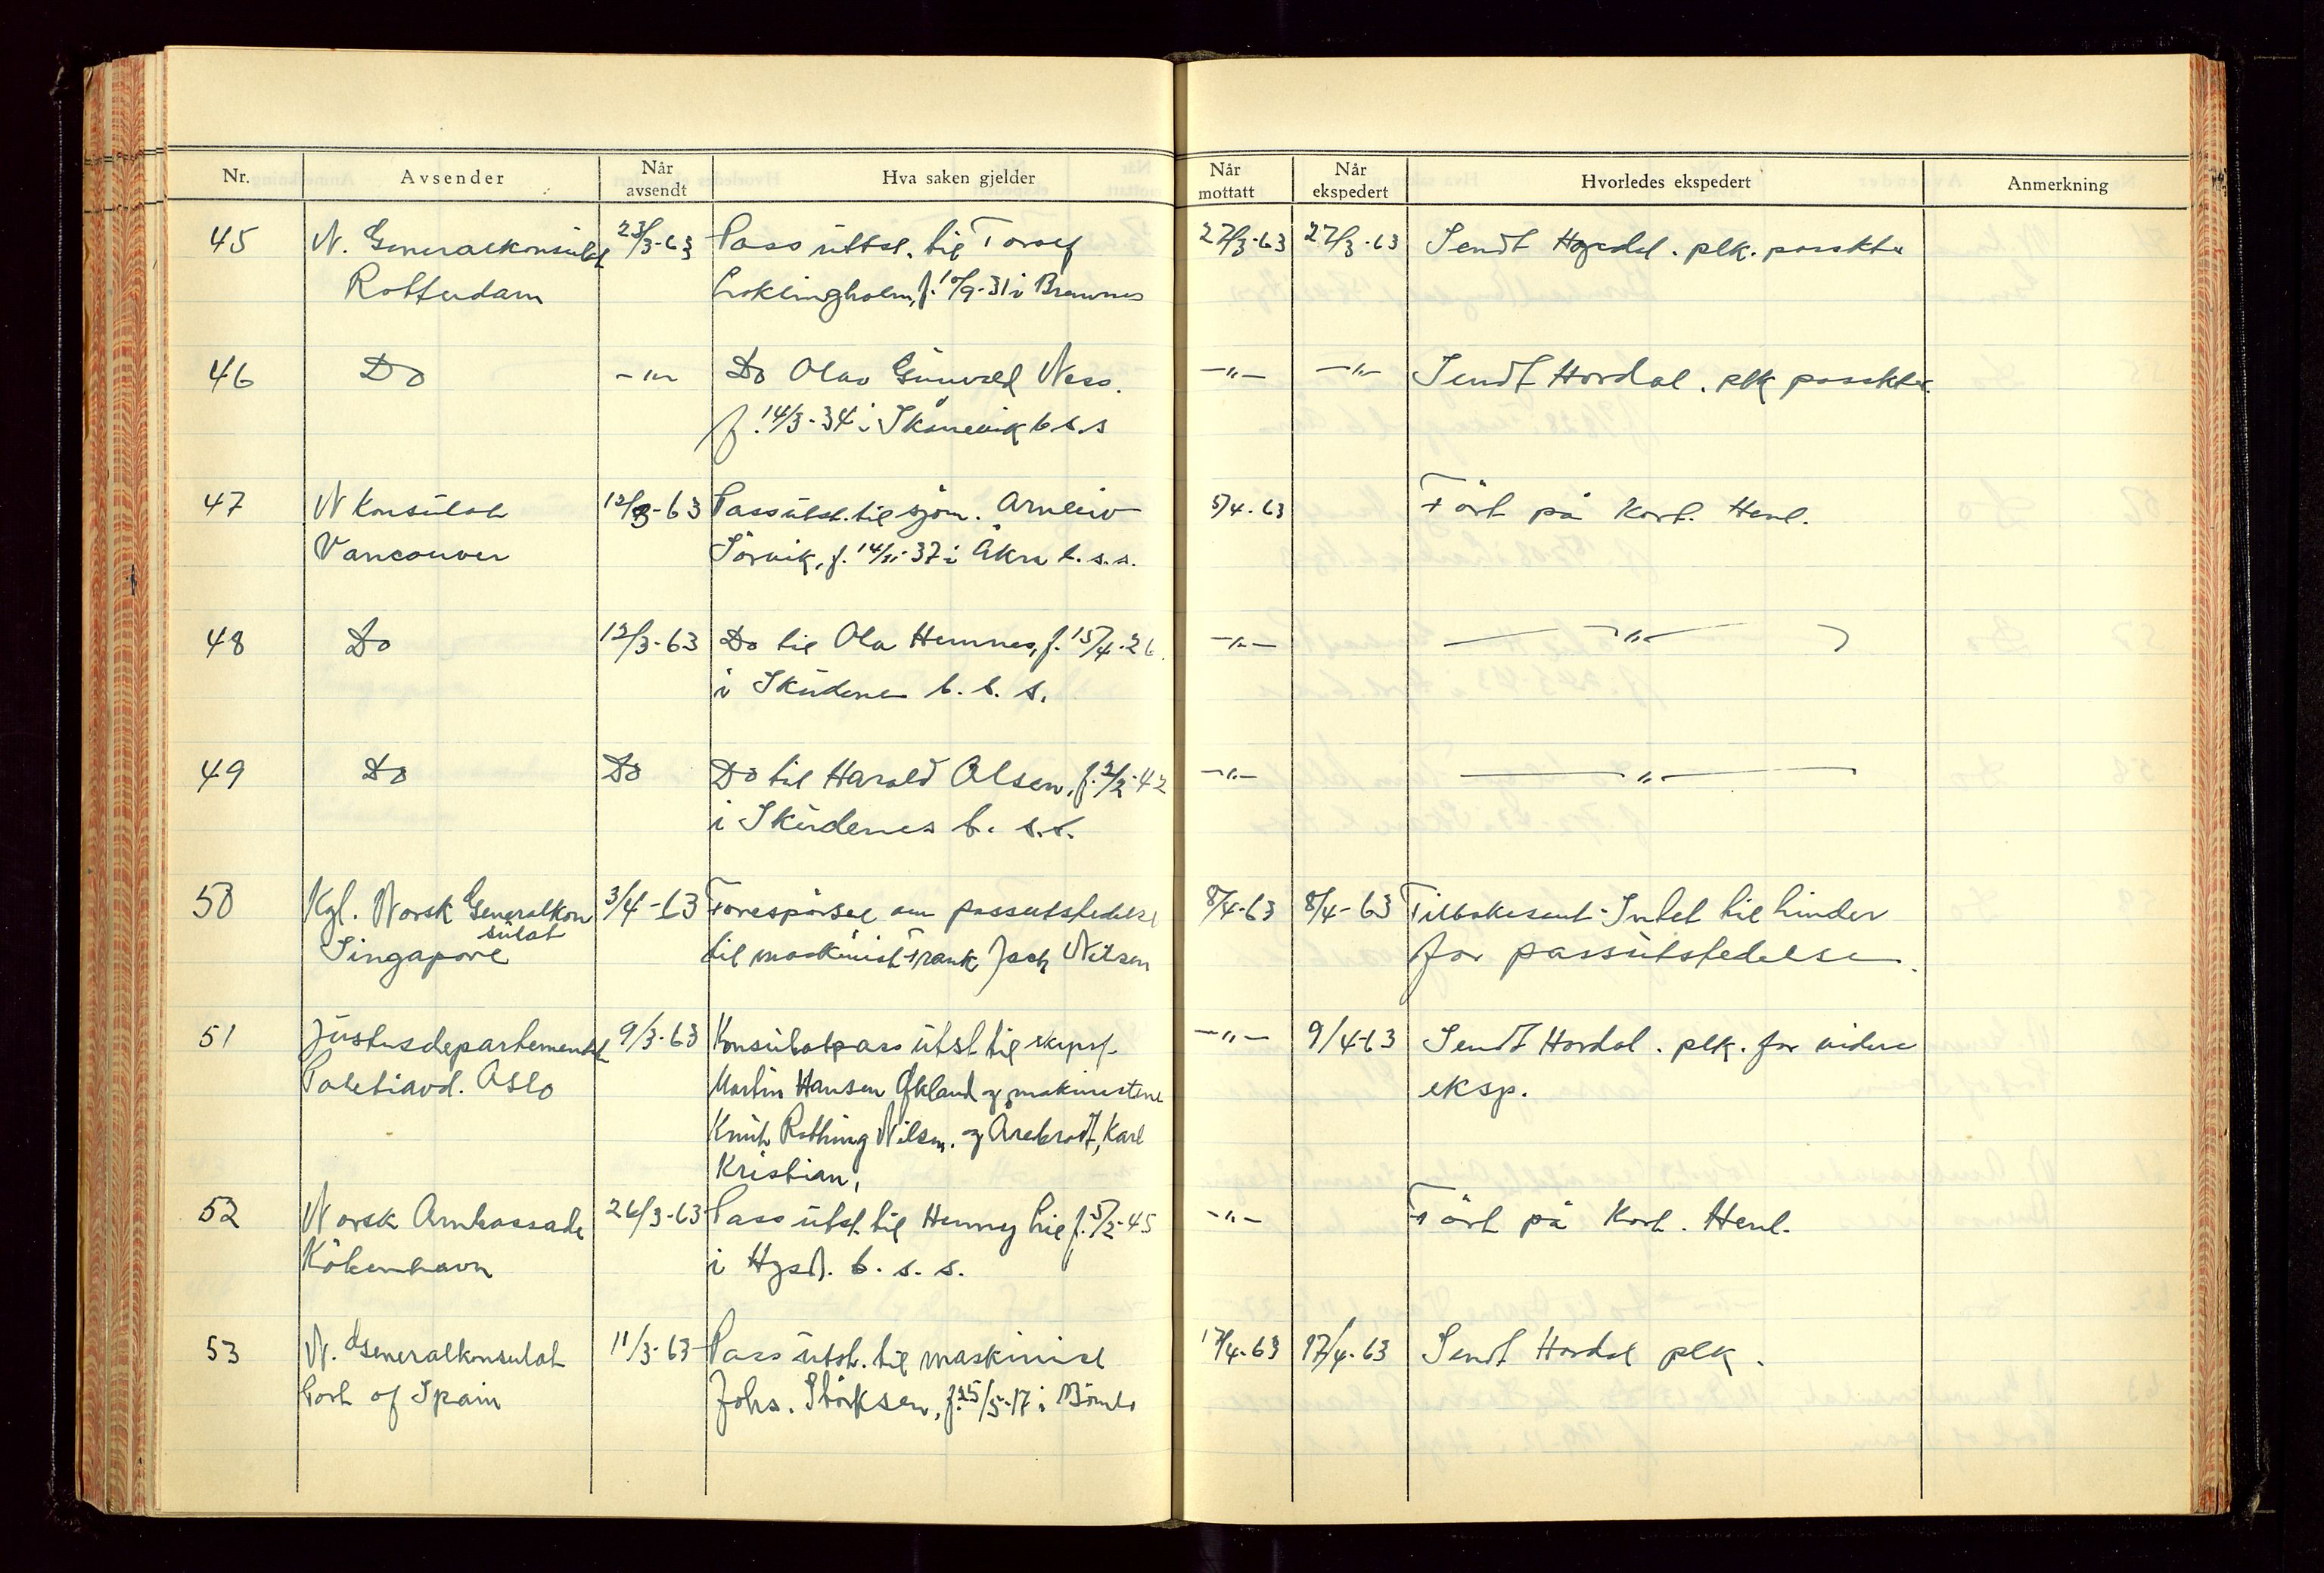 Nr. Avsender Når avsendt Hva saken gjelder Når mottatt Når ekspedert Hvorledes ekspedert Anmerkning
45 N. Generalkonsulat 23/3-63 Pass utst. til Torlef 27/3-63 27/3-63 Sendt Hordal. plk. passktr
Rotterdam f. 10/9-31 i Bremnes
46 Do -"- Do Olav Gunvald Ness. -"- -"- Sendt Hordal. plk passktr.
f. 14/3-34 i Skånevik b.s.s
47 N Konsulat 12/3-63 Pass utst. til sjøm. Arnleiv 5/4-63 Ført på Kort. Henl.
Vancouver Sørvik, f. 14/11-37 i Åkra b.s.s.
48 Do 12/3-63 Do til Ola Hemnes, f. 15/4-26 -"- -"-
i Skudenes b.s.s.
49 Do Do Do til Harald Olsen, f. 2/2-42 -"- -"-
i Skudenes b.s.s.
50 Kgl. Norsk Generalkon 3/4-63 Forespørsel om passutstedelse 8/4-63 8/4-63 Tilbakesent. Intet til hinder
sulat
Singapore til maskinist Frank Jack Nilsen for passutstedelse.
51 Justisdepartementet 9/3-63 Konsulatpass utst. til skipsf. -"- 9/4-63 Sendt Hordal. plk. for videre
Politiavd. Oslo Martin Hansen Økland og maskinistene eksp.
Knut Nilsen. og Arebrodt, Karl
Kristian,
52 Norsk Ambassade 26/3-63 Pass utst. til Henny Lie f. 5/2-45 -"- Ført på Kort. Henl.
København i Hgsd. b.s.s.
53 N. Generalkonsulat 11/3-63 Pass utst. til maskinist 17/4-63 17/4-63 Sendt Hordal plk.
Port of Spain Johs. Størksen, f. 25/5-17 i Bømlo